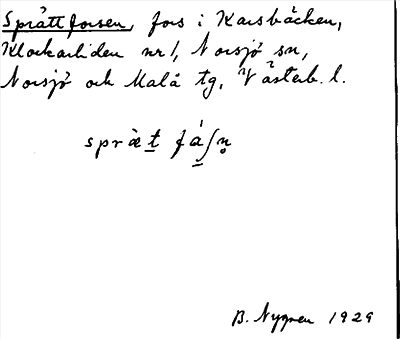 Sprättforsen, fors i Karsbäcken,
Klockarliden nr 1, Norsjö sn,
Norsjö och Malå tg, Västerb. l.
spræ̀t fáʃn̥
B. Nygren 1929